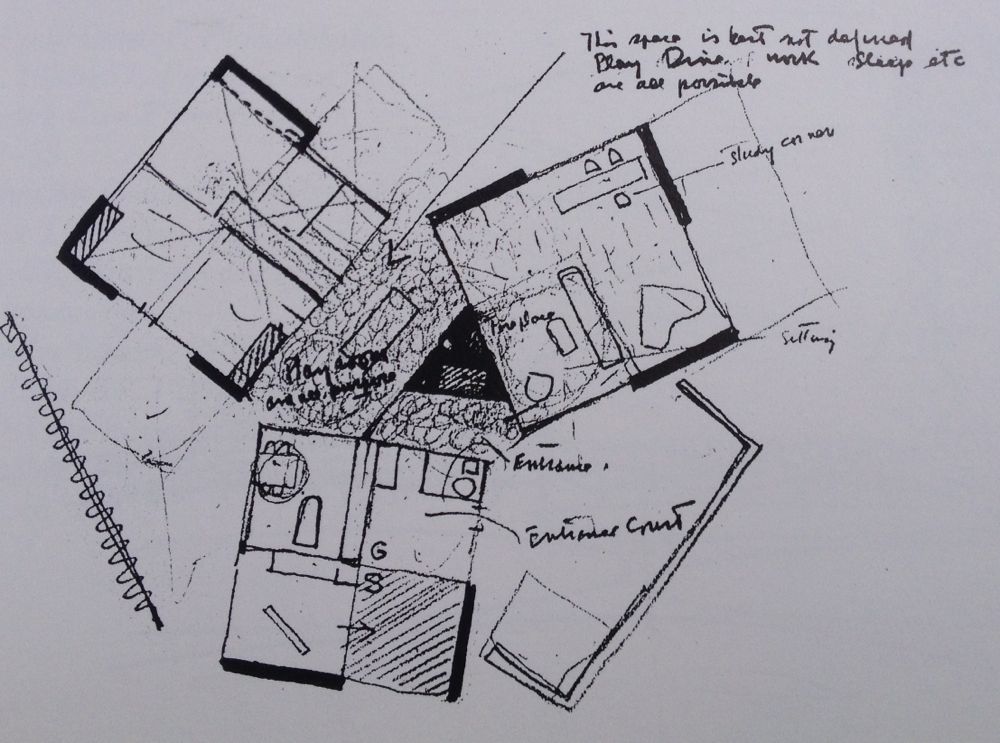 This space is best not defined
Play Dine, work Sleep etc
are all possible
study corner
L
Fireplace
Sitting
Play room
Entrance.
Entrance Court
G
S